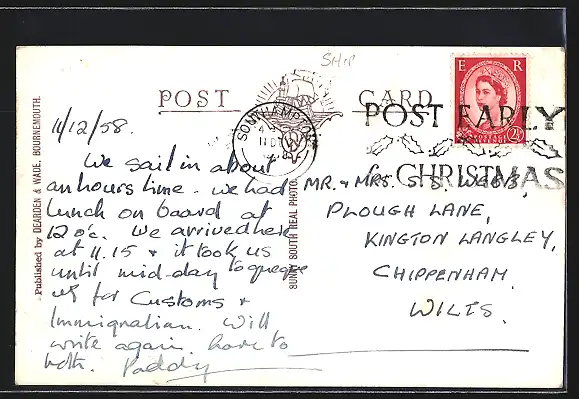 SHIP
POST CARD
E R
POSTAGE
REVENUE
2½
SOUTHAMPTON
POST EARLY
for CHRISTMAS
11/12/58.
We sail in about
an hours time. we had
lunch on board at
12 o'c. We arrived here
at 11.15 & it took us
until mid-day to queue
up for Customs &
Immigration. Will
write again love to
both. Paddy
MR. & MRS. S. S. WEBB,
PLOUGH LANE,
KINGTON LANGLEY,
CHIPPENHAM,
WILTS.
Published by DEARDEN & WADE, BOURNEMOUTH.
SUNNY SOUTH REAL PHOTO.